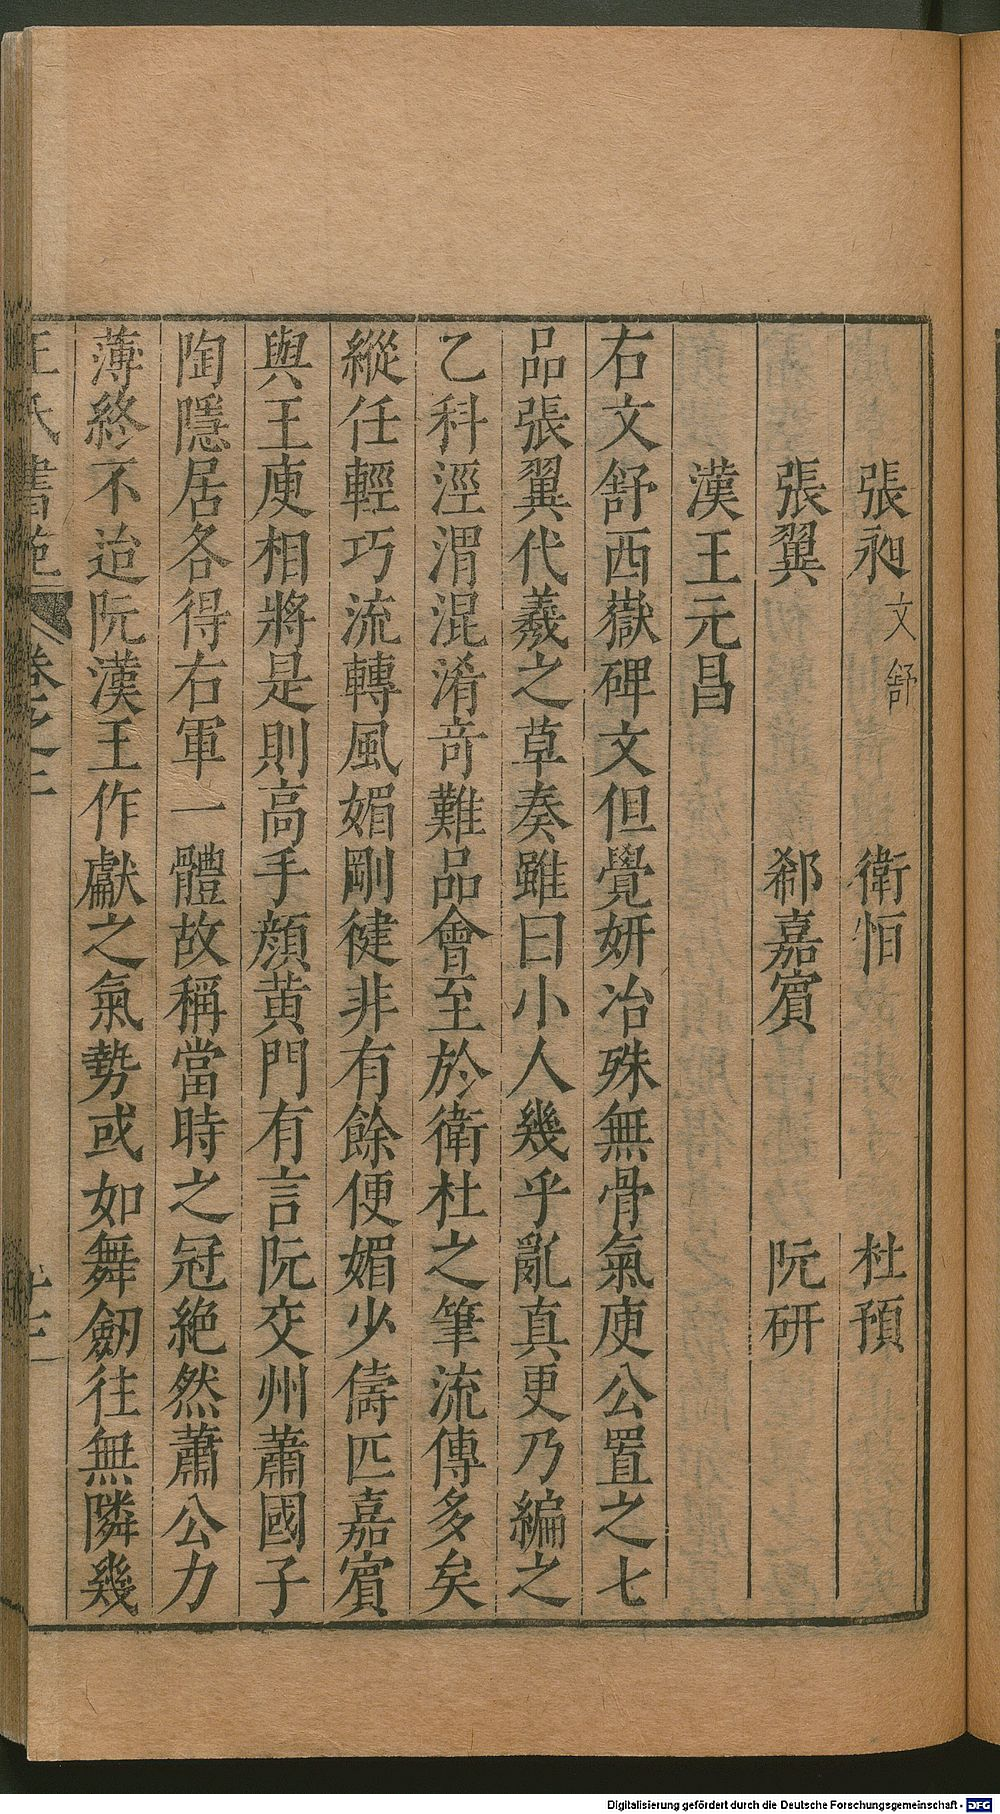 張昶文舒　衛恒　杜預
張翼　郗嘉賓　阮研
漢王元昌
右文舒西嶽碑文但覺妍冶殊無骨氣庾公置之七
品張翼代羲之草奏雖曰小人幾乎亂真更乃編之
乙科涇渭混淆竒難品會至於衛杜之筆流傳多矣
縱任輕巧流轉風媚剛健非有餘便媚少儔匹嘉賓
與王庾相將是則高手顔黃門有言阮交州蕭國子
陶隱居各得右軍一體故稱當時之冠絶然蕭公力
薄終不迨阮漢王作獻之氣勢或如舞劒往往無隣幾
王氏書苑 卷之二
Digitalisierung gefördert durch die Deutsche Forschungsgemeinschaft - DFG